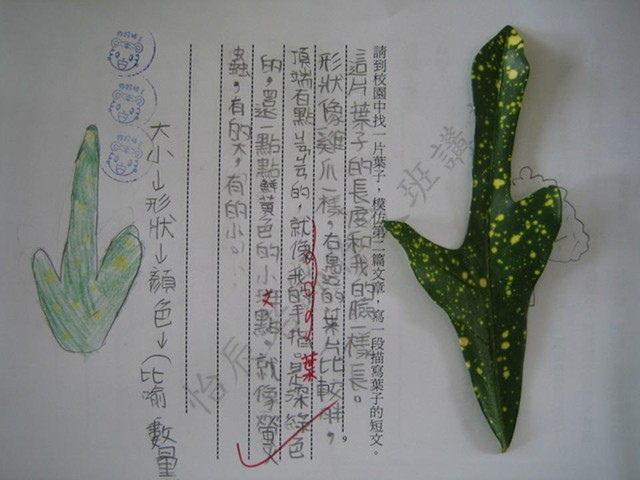 請到校園中找一片葉子，模仿第二篇文章，寫一段描寫葉子的短文。
這片葉子的長度和我的臉一樣長。
形狀像雞爪一樣，右邊的葉片比較胖，
頂端有點尖尖的，就像我的手指是深綠色
葉
的，還一點點鮮黃色的小斑點，就像螢火
蟲，有的大，有的小。
大小↓形狀↓顏色↓(比喻 數量
怡辰
班讀